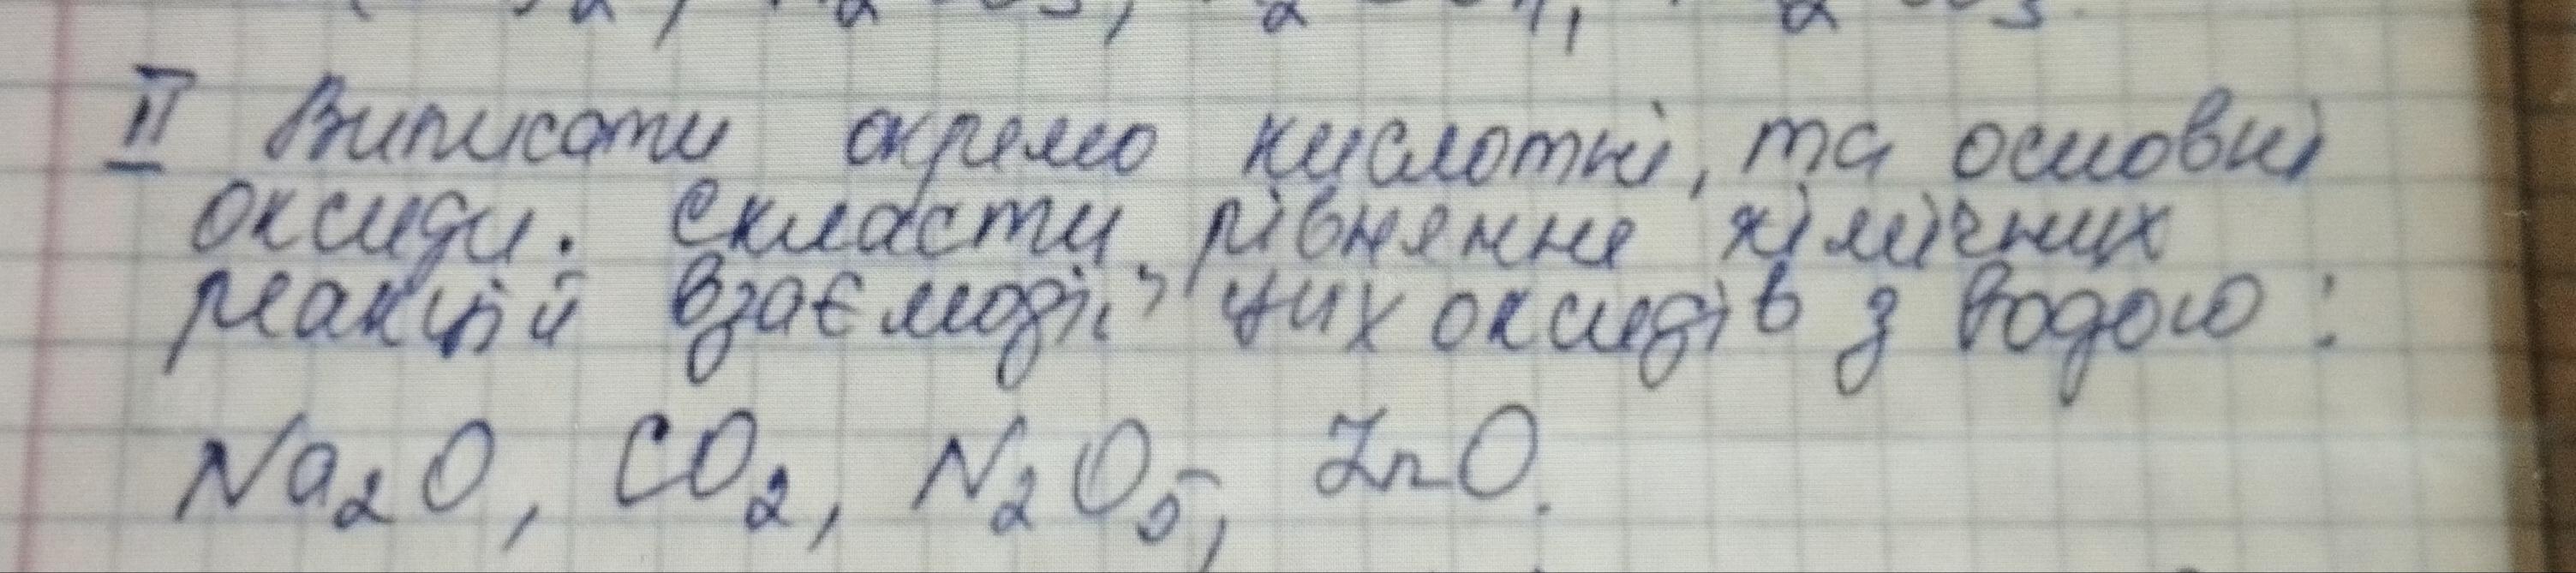 II Виписати окремо кислотні, та основні
оксиди. Скласти рівняння хімічних
реакцій взаємодії цих оксидів з водою:
Na₂O, CO₂, N₂O₅, ZnO.